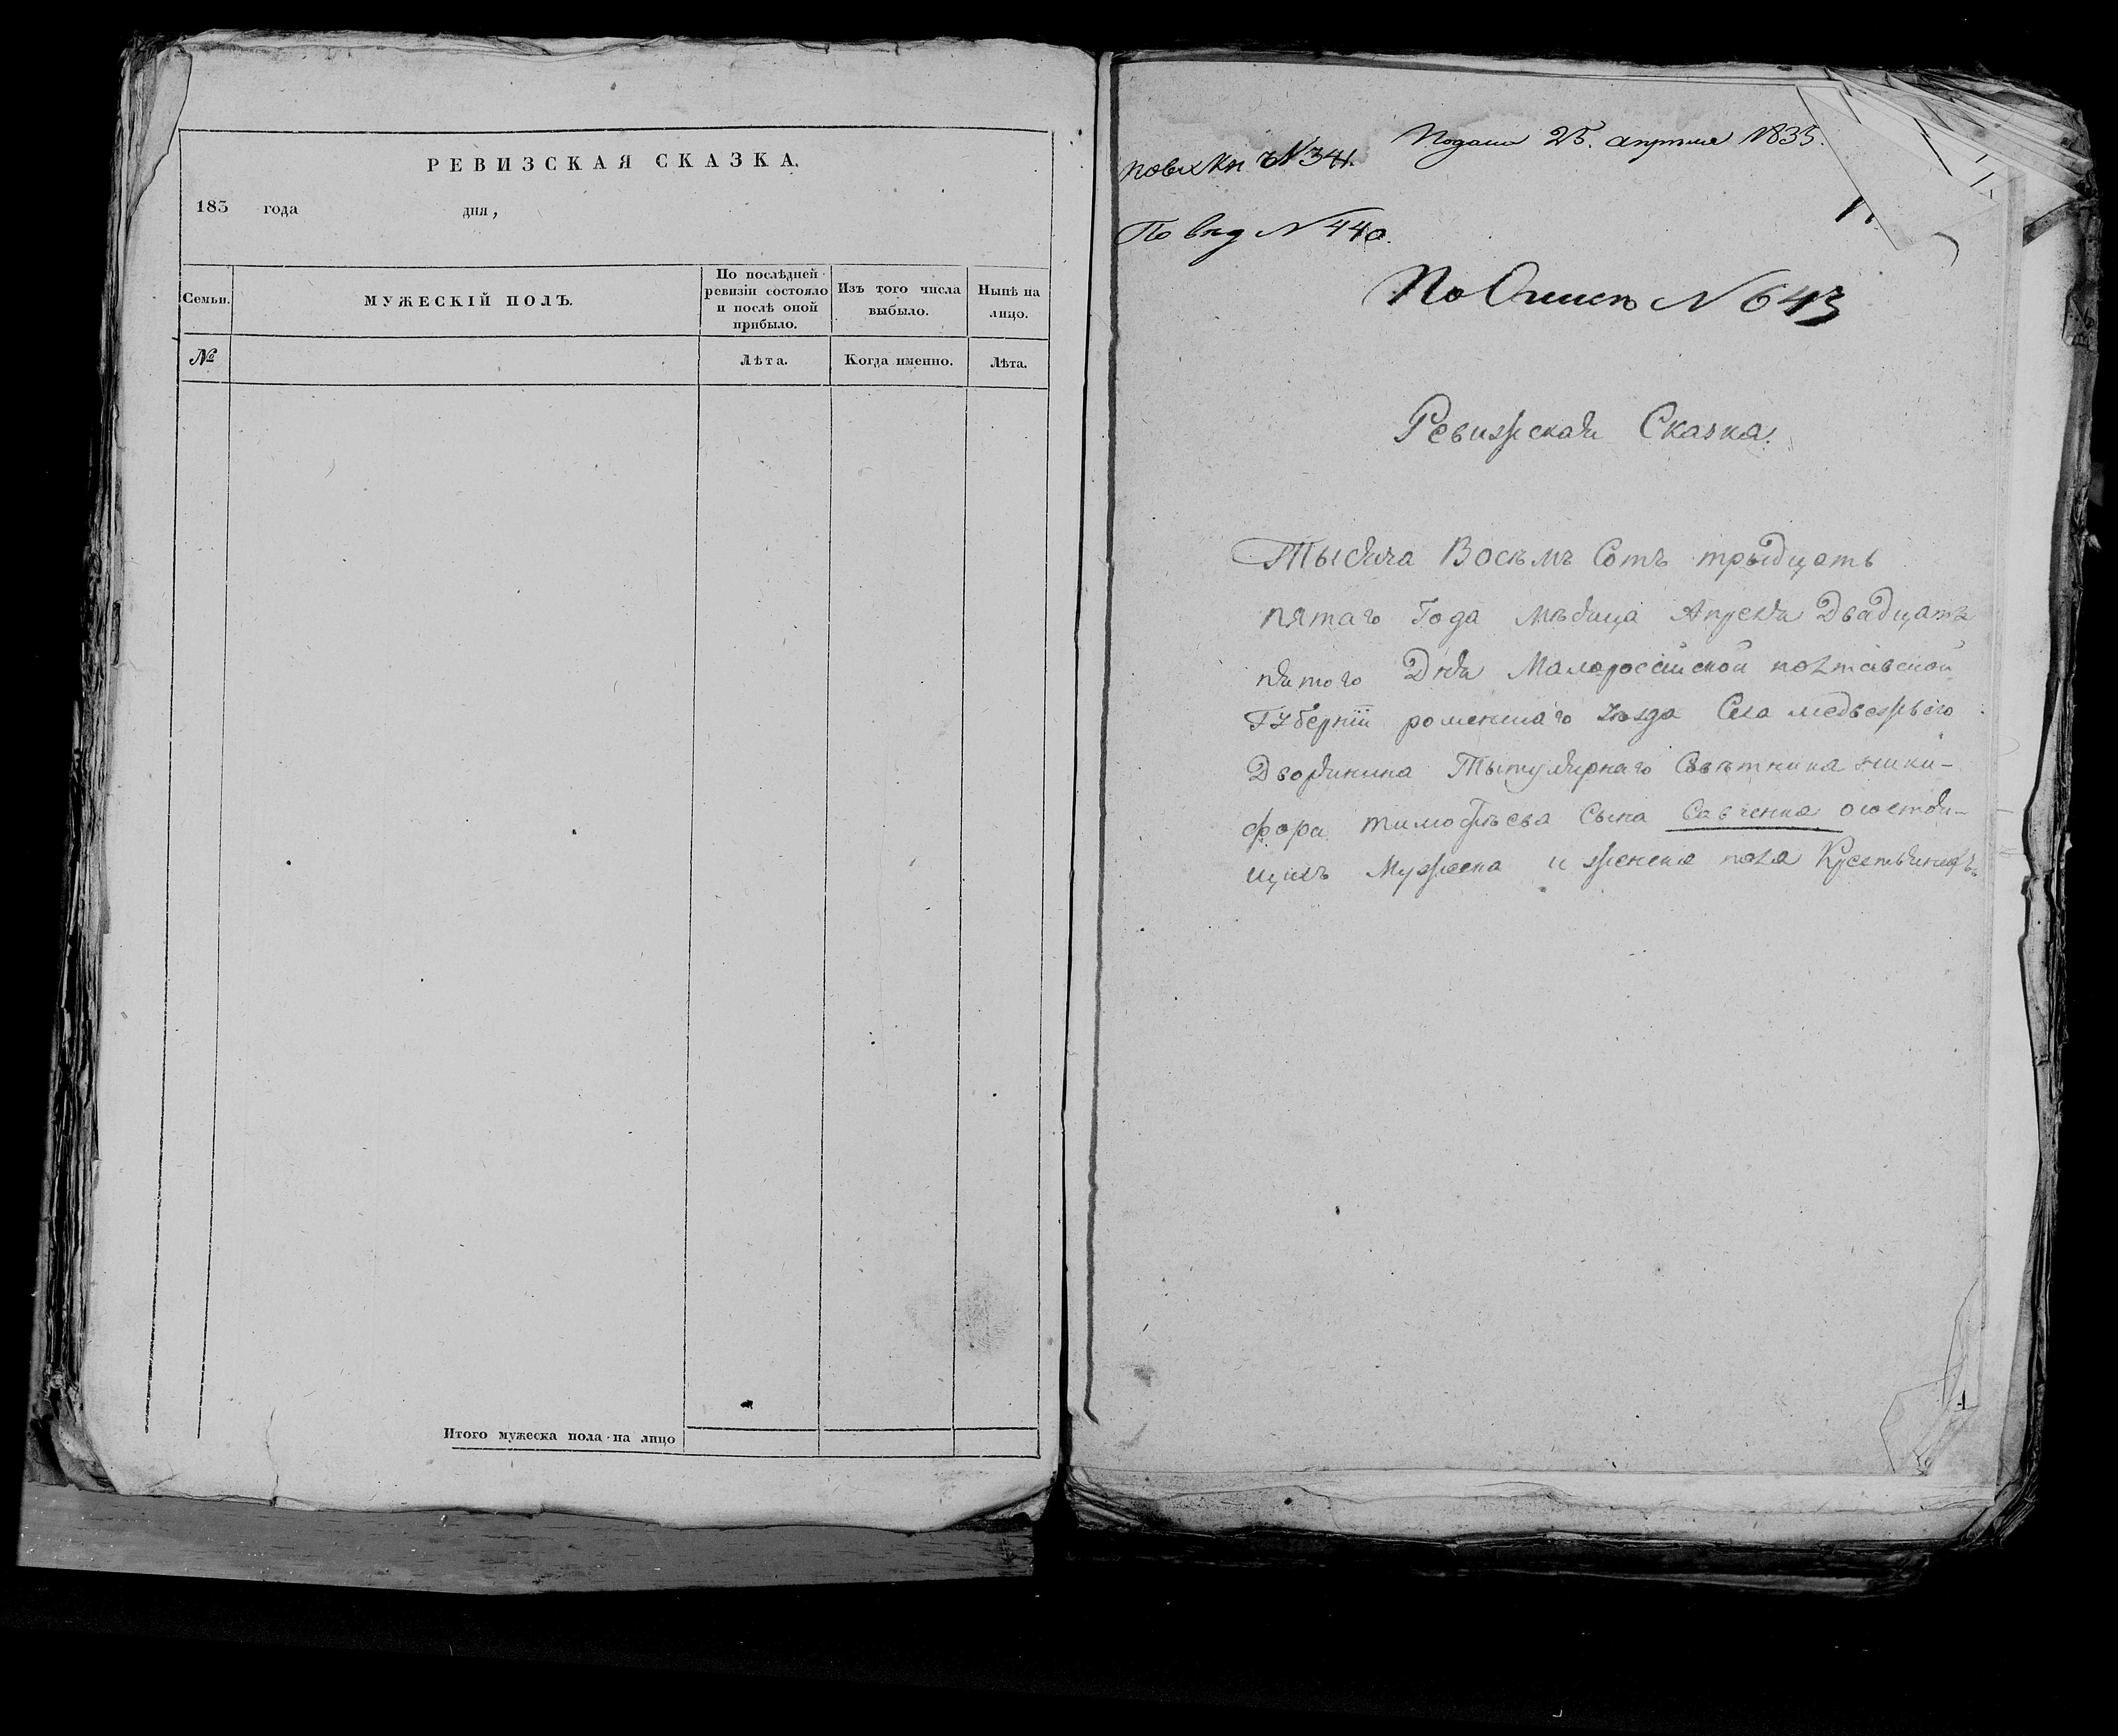 РЕВИЗСКАЯ СКАЗКА.
183 года дня,
Семьи.
МУЖЕСКІЙ ПОЛЪ.
По послѣдней
ревизіи состояло
и послѣ оной
прибыло.
Изъ того числа
выбыло.
Нынѣ на
лицо.
№
Лѣта.
Когда именно.
Лѣта.
Итого мужеска пола на лицо
Подана 25. апреля 1835.
N 341.
По вхд N 440.
По Описи N 643
Ревижская Сказка.
Тысяча Восѣмъ Сотъ трыдцать
пятаго Года мѣсяца Апреля Двадцать
пятого Дня Малоросійской полтавской
Губерніи роменшаго уѣзда Села медвежъего
Дворянина Тытулярнаго Совѣтника ники-
фора тимофѣева Сына Савченка о состоя-
щихъ Мужеска и женска пола Крестьянахъ.